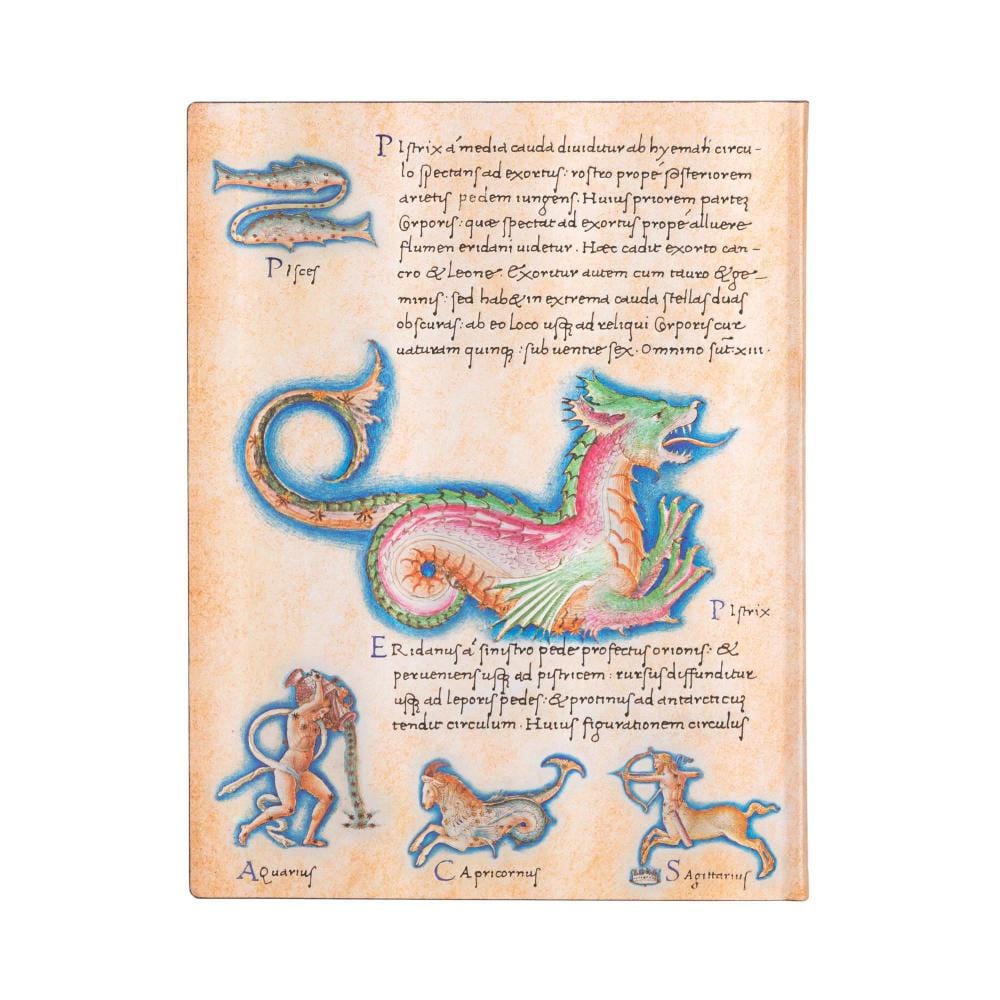 Pisces
PIstrix a media cauda diuiditur ab hyemati circu-
lo spectans ad exortus: rostro prope posteriorem
arietis pedem iungens. Huius priorem partez
Corporis: quæ spectat ad exortus prope alluere
flumen eridani uidetur. Hæc cadit exorto can-
cro & Leone. Exoritur autem cum tauro & ge-
minis: sed hab& in extrema cauda stellas duas
obscuras: ab eo loco usq; ad reliqui Corporis cur
uaturam quinq; : sub uentre sex. Omnino sūt. xiii.
PIstrix
ERidanus a sinistro pede profectus orionis: &
perueniens usq; ad pistricem: rursus diffunditur
usq; ad leporis pedes: & protinus ad antarcticuz
tendit circulum. Huius figurationem circulus
AQuarius
CApricornus
SAgittarius